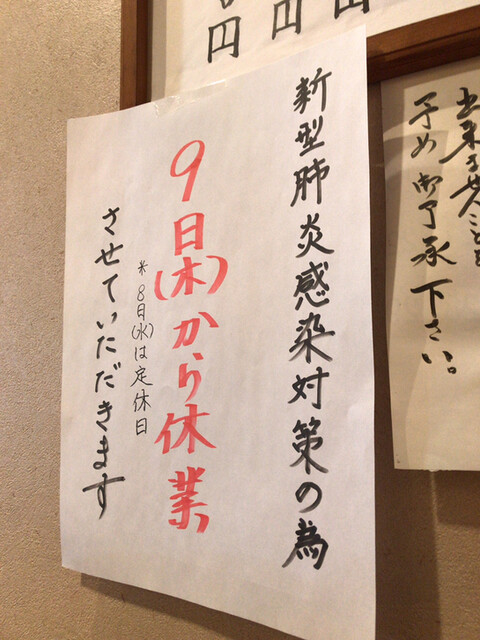 新型肺炎感染対策の為
9日(木)から休業
*8日(水)は定休日
させていただきます
円
円
予め御了承下さい。